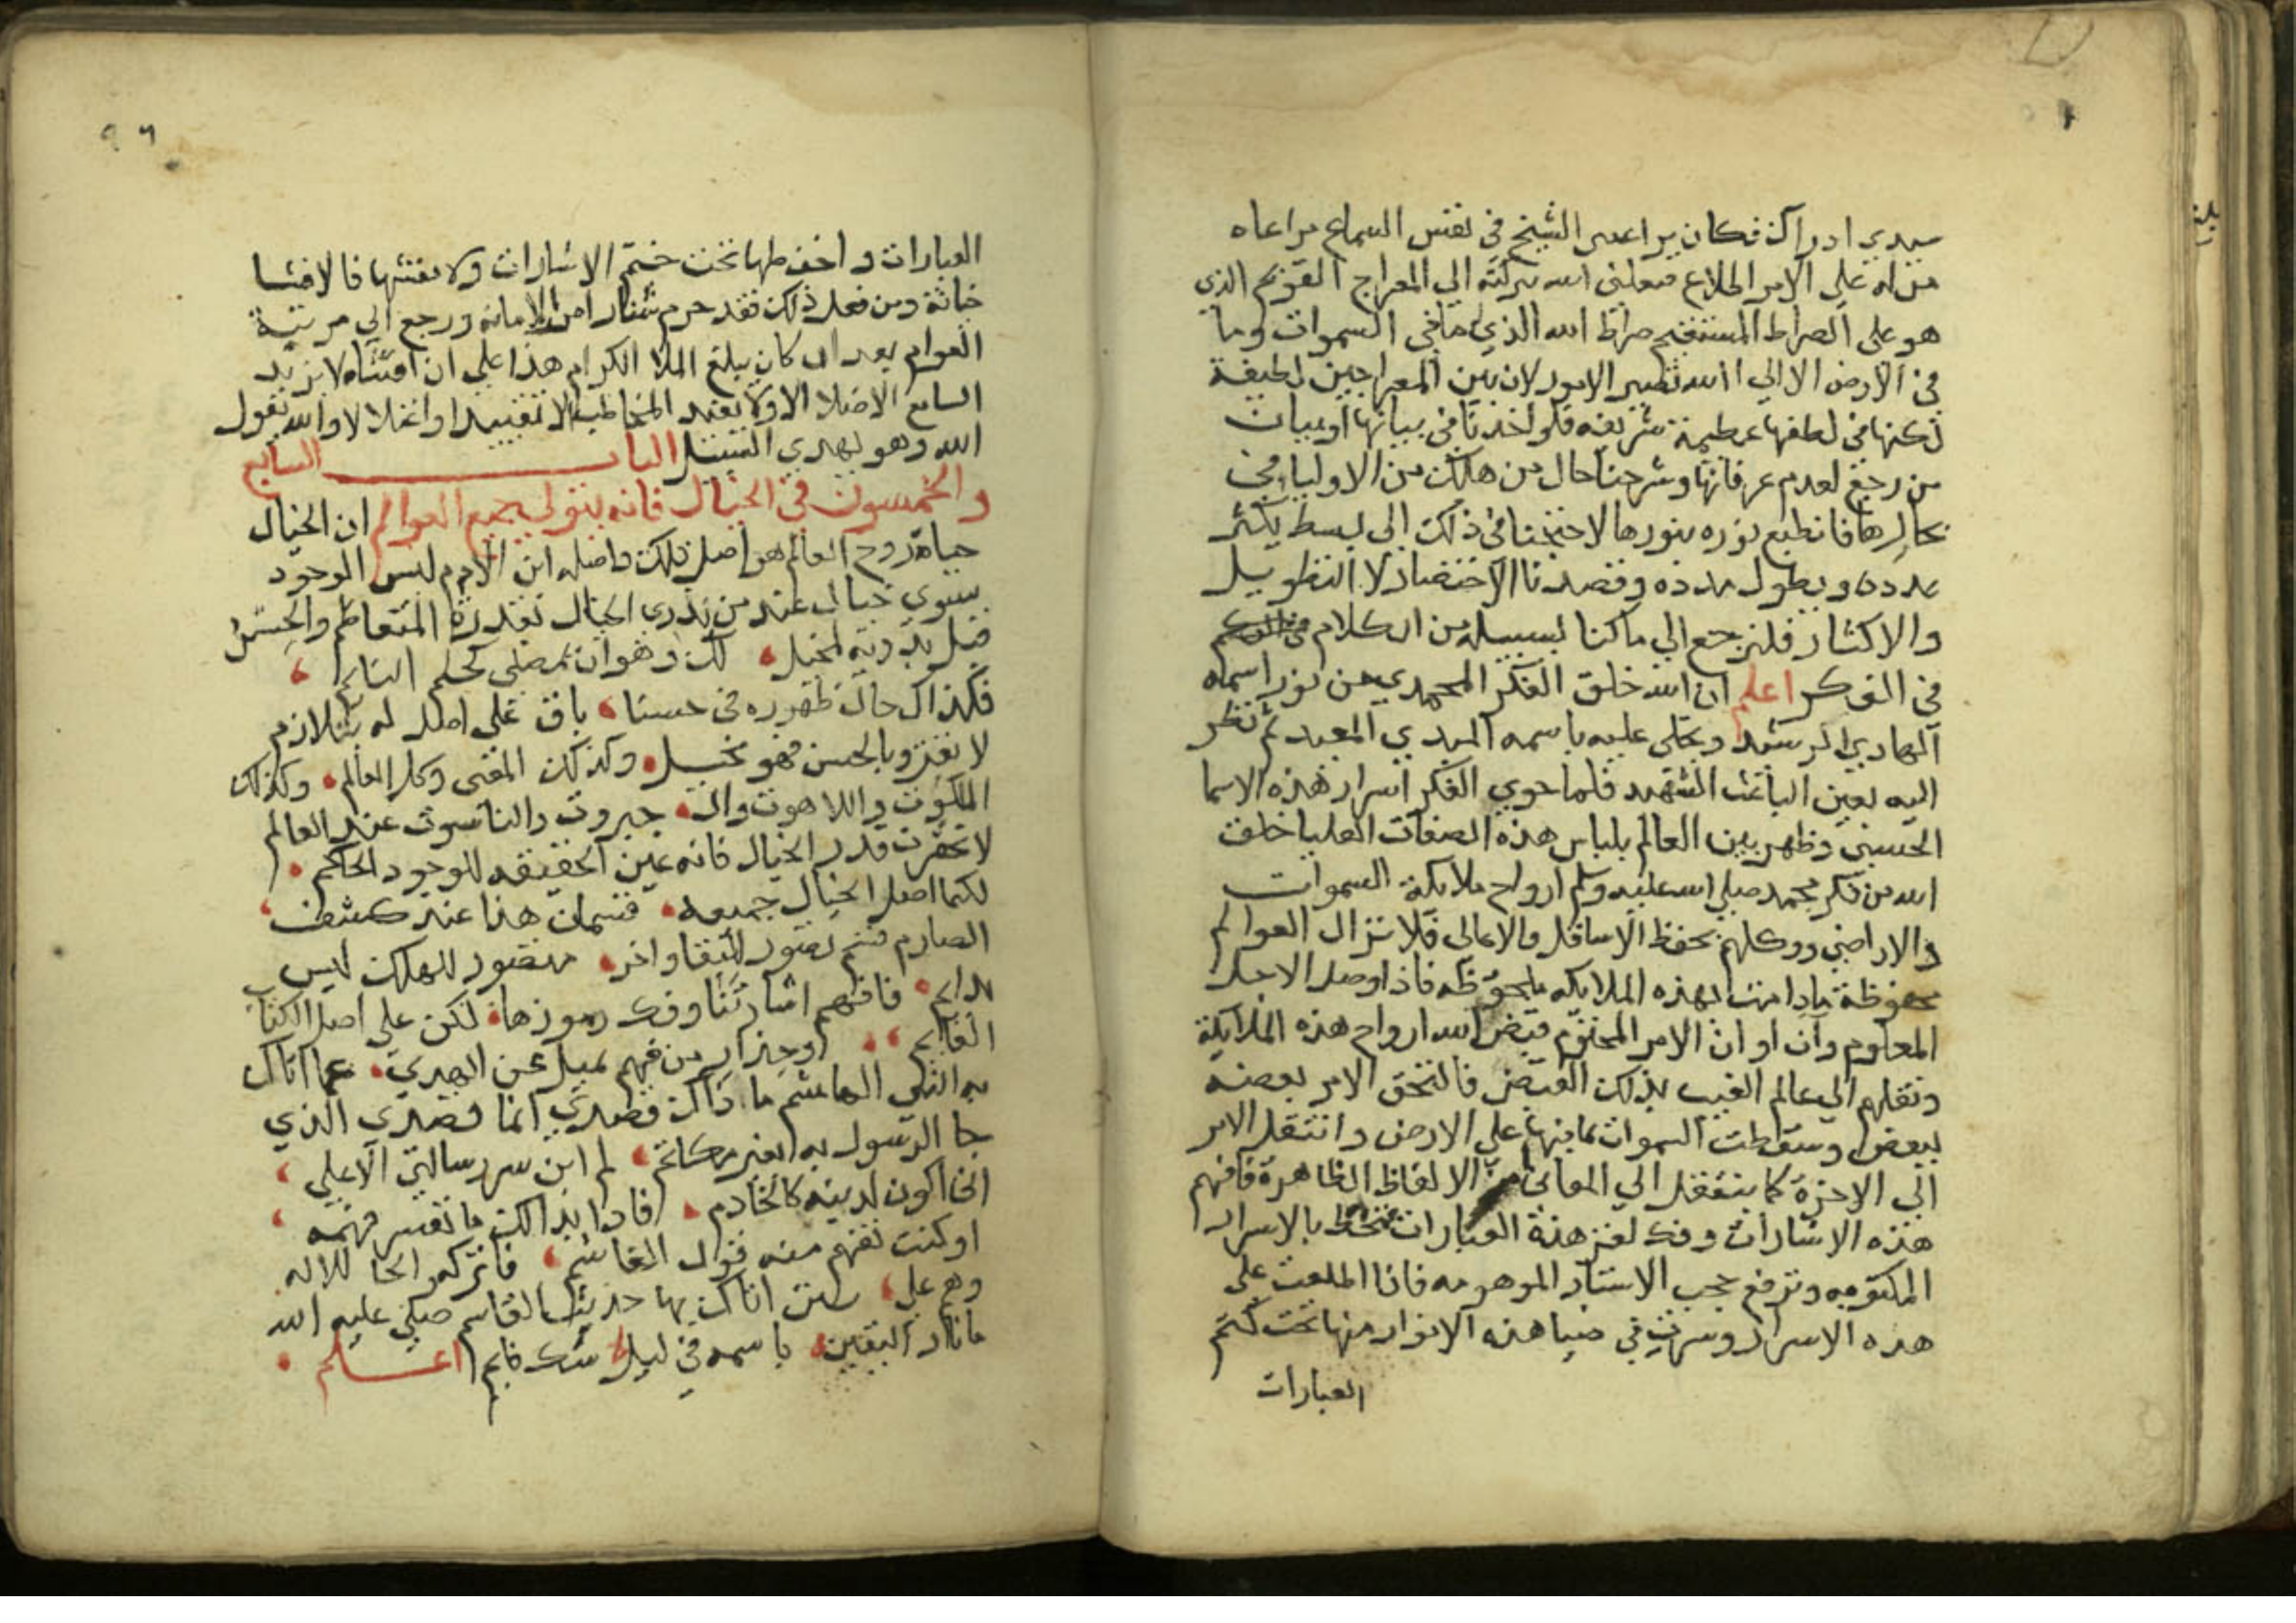 سيدي ادراك فكان يراعى الشيخ في نفس السماع مراعاه
من له على الامر اطلاع فعلنى الله بركته الى المعراج القويم الذي
هو على الصراط المستقيم صراط الله الذي ما في السموات وما
في الارض الا الى الله تصير الامور لان بين المعراجين لطيفة
لكنها في لطفها عظيمة شريفه فلو اخذنا في بيانها او بيان
من رجع لعدم عرفانها وشرحنا حال من هلك من الاوليا في
بحارها فانطبع نوره بنورها لاحتجنا في ذلك الى بسط يكثر
عدده ويطول مدده وقصدنا الاختصار لا التطويل
والاكثار فلنرجع الى ما كنا لسبيله من الكلام
في الفكر اعلم ان الله خلق الفكر المحمدي من نور اسمه
الهادي الرشيد وتجلى عليه باسمه المبدي المعيد ثم نظر
اليه بعين الباعث الشهيد فلما حوي الفكر اسرار هذه الاسما
الحسنى وظهر بين العالم بلباس هذه الصفات العليا خلق
الله من فكر محمد صلى الله عليه وسلم ارواح ملايكة السموات
والاراضي ووكلهم بحفظ الاسافل والاعالى فلا تزال العوالم
محفوظة مادامت بهذه الملايكه ملحوظه فاذا وصل الاجل
المعلوم وآن اوان الامر المحتوم قبض الله ارواح هذه الملايكة
ونقلهم الى عالم الغيب بذلك القبض فالتحق الامر بعضه
ببعض وسقطت السموات بما فيها على الارض وانتقل الامر
الى الاخرة كما ينتقل الى المعانى من الالفاظ الظاهرة فافهم
هذه الاشارات وفك لغز هذه العبارات تحظ بالاسرار
المكتومه وترفع حجب الاستار الموهومه فاذا اطلعت على
هذه الاسرار وسرت في ضيا هذه الانوار صنها تحت كتم
العبارات
العبارات واحفظها تحت ختم الاشارات ولا تفشها فالافشا
خيانة ومن فعل ذلك فقد حرم ثمار امر الامانه ورجع الى مرتبة
العوام بعد ان كان يبلغ الملا الكرام هذا على ان افشاه لا يزيد
السامع الا ضلالا ولا يفيد المخاطب الا تقييدا واغلالا والله يقول
الله وهو يهدي السبيل الباب السابع
والخمسون في الخيال فانه هيولى جميع العوالم ان الخيال
حياة روح العالم هو اصل تلك واصله ابن الادم ليس الوجود
سوى خيال عند من يدري الخيال بقدرة المتعاظم والحس
قبل بدوه لمخيل لك وهو ان يمضى كحلم النايم
فكذاك حال ظهوره في حسنا باق على اصل له بتلازم
لا تغترر بالحس فهو مخيل وكذلك المعنى وكل العالم وكذلك
الملكوت واللاهوت وال جبروت والناسوت عند العالم
لا تحقرن قدر الخيال فانه عين الحقيقه للوجود الحاكم
لكنما اصل الخيال جميعه قسمان هذا عند كشف
الصارم قسم تصور للبقا واخر متصور للهلك ليس
بدايم فافهم اشارتنا وفك رموزها لكن على اصل الكتاب
القايم وحذار من فهم يميل عن الهدى عما اتاك
به النبي الهاشم ما ذاك قصدي انما قصدى الذي
جا الرسول به لم ابن سر رسالتي الا على
انى اكون لدينه كالخادم فاذا بدا لك ما تعسر فهمه
او كنت تفهم منه قول الغاشم فاتركه الحا للاله
وهم على سنن اتاك بها حديث القاسم صلى عليه الله
ما نار اليقين باسمه في ليل شك قايم اعلم